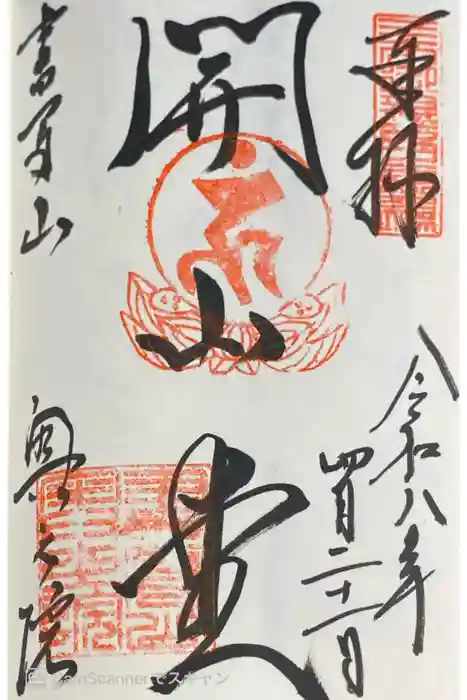 奉拝
令和八年
四月二十一日
開山堂
書写山
奥之院
CamScannerでスキャン